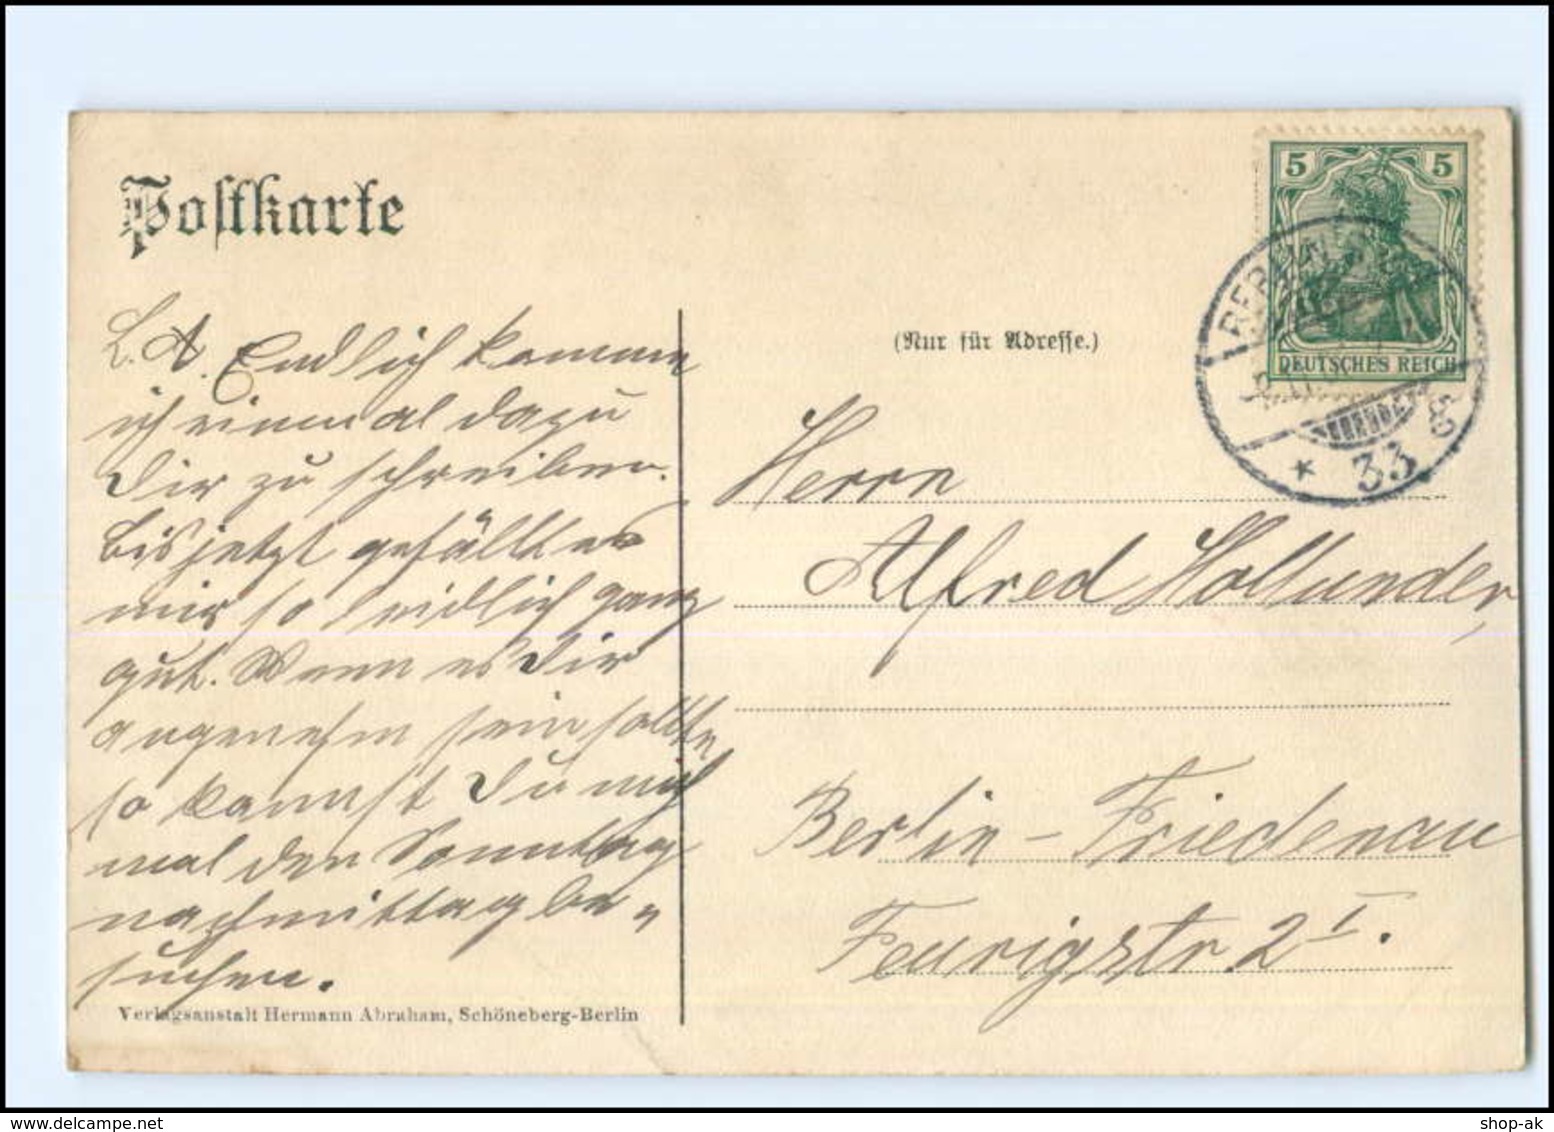 Postkarte
L. A. Endlich komme
ich einmal dazu
Dir zu schreiben.
Bis jetzt gefällt es
mir so leidlich ganz
gut. Wenn es Dir
angenehm sein sollte
so kannst Du mich
mal den Sonntag
nachmittag be„
suchen.
Verlagsanstalt Hermann Abraham, Schöneberg-Berlin
5 5
DEUTSCHES REICH
BERLIN
* 33
(Nur für Adresse.)
Herrn
Alfred Hollunder,
Berlin – Friedenau
Feurigstr. 2 I.
shop-ak